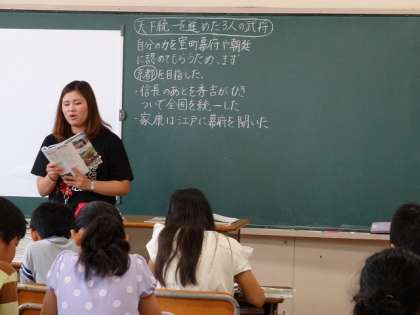 天下統一を進めた3人の武将
自分の力を室町幕府や朝廷
に認めてもらうため、まず
京都を目指した。
・信長のあとを秀吉がひき
ついで全国を統一した
・家康は江戸に幕府を開いた